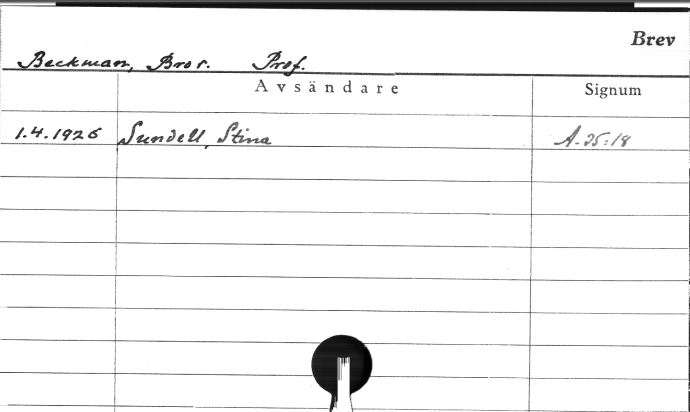 Brev
Beckman, Bror. Prof.
Avsändare Signum
1.4.1926 Sundell, Stina A.35:18